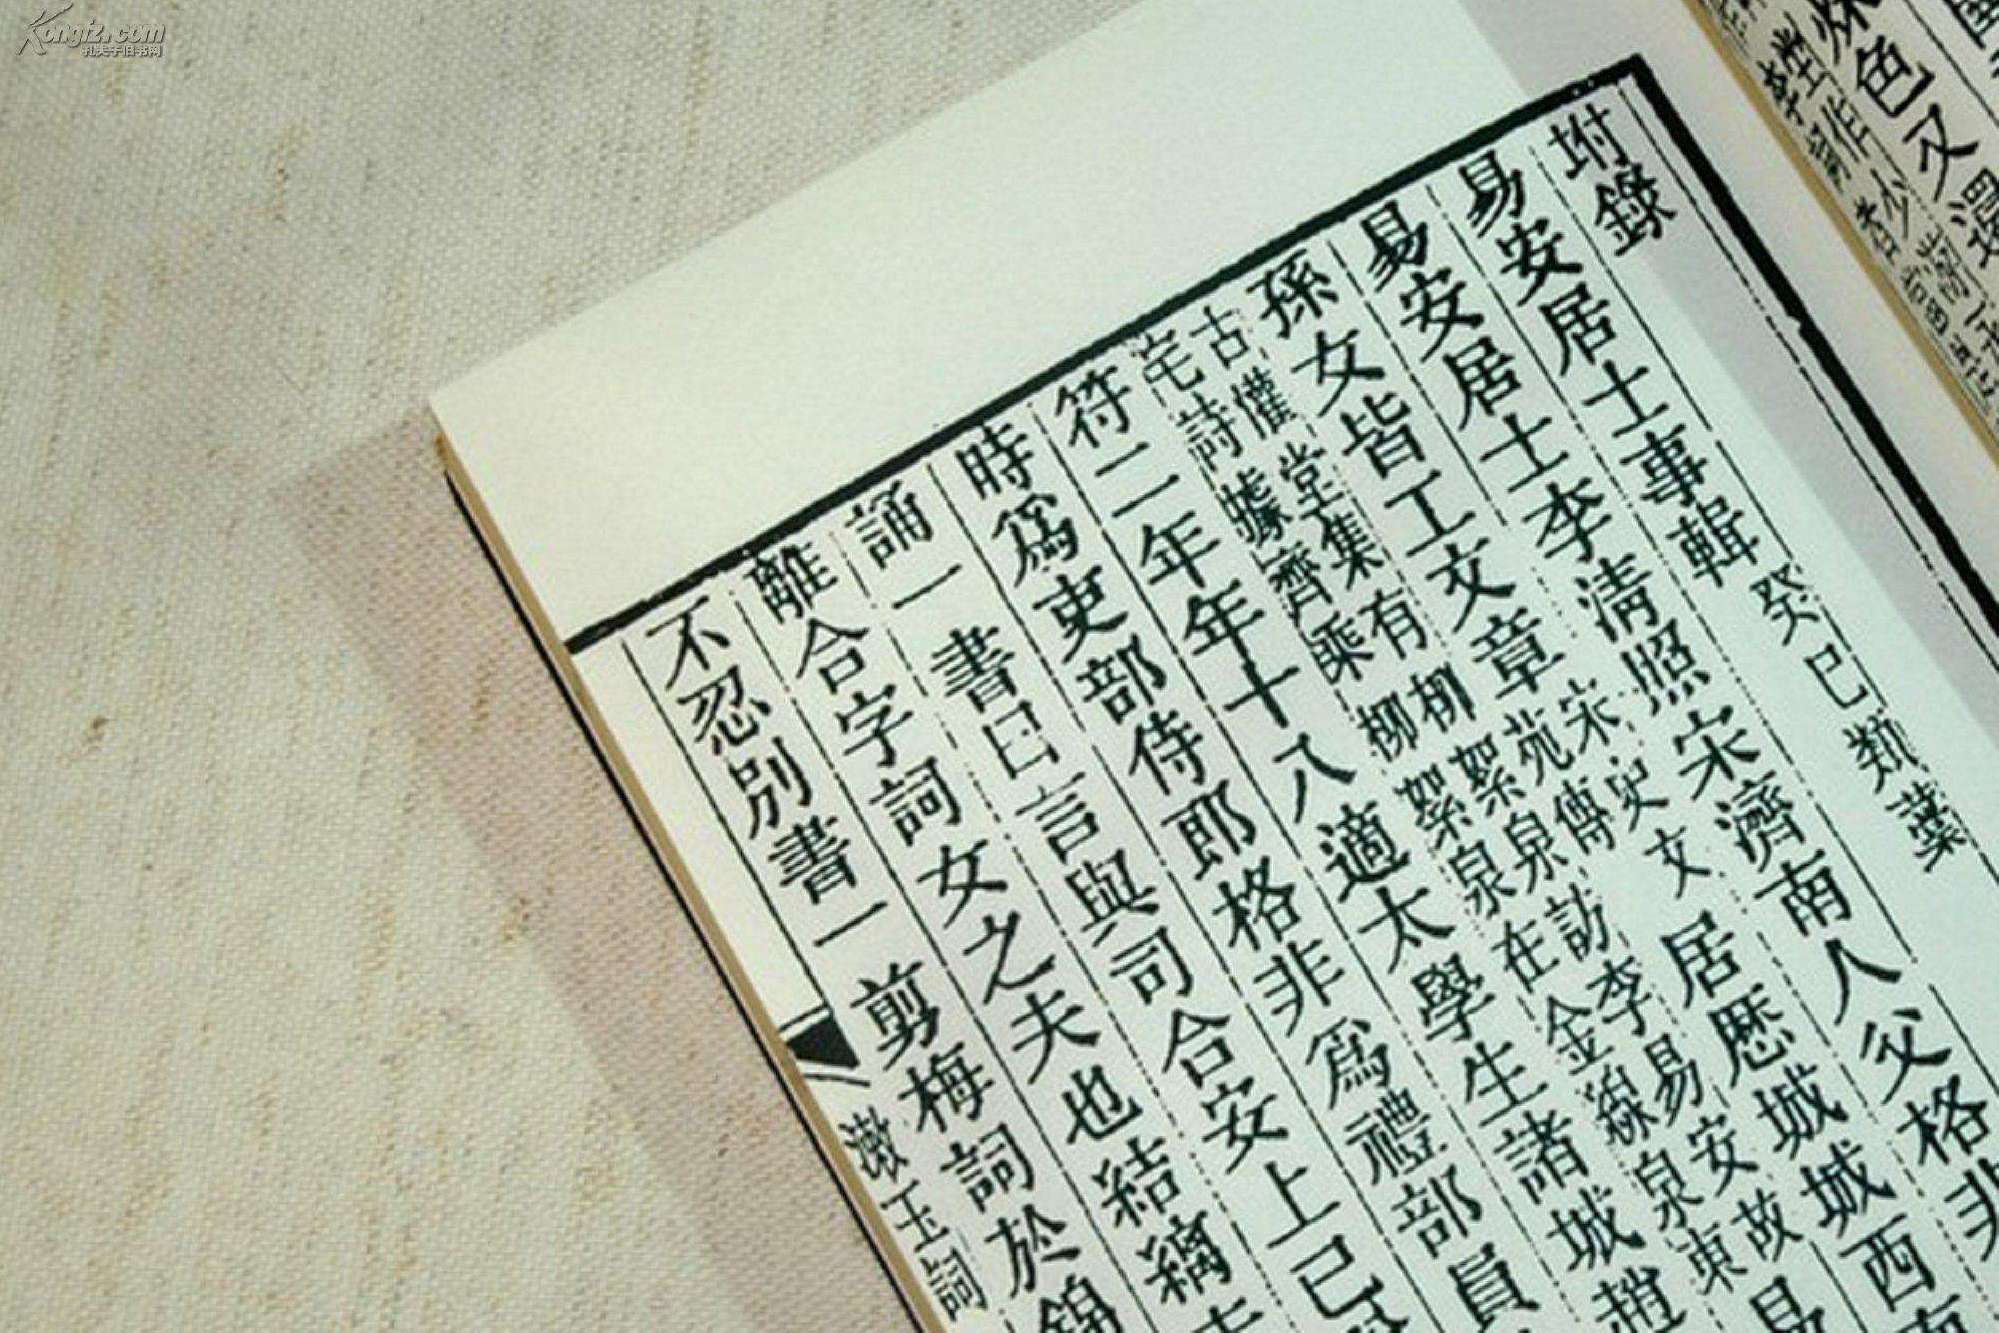 Kongfz.com
孔夫子旧书网
色又
坿錄
易安居士事輯 癸巳類藁
易安居士李清照宋濟南人父格非
孫女皆工文章 宋史文
苑傳 居歷城城西
古懽堂集有柳絮泉訪李易安故
宅詩據齊乘柳絮泉在金線泉東
符二年年十八適太學生諸城趙
時爲吏部侍郎格非爲禮部員
誦一書曰言與司合安上已
離合字詞女之夫也結縭
不忍別書一剪梅詞於錦
漱玉詞